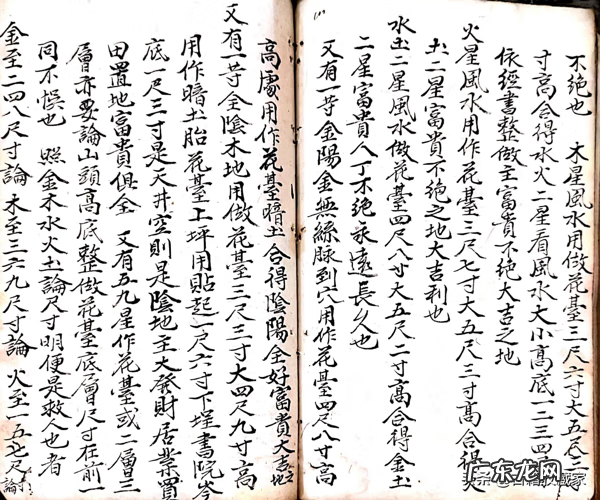 不絕也 木星風水用做花臺三尺六寸大五尺三
寸高合得水火二星看風水大小高底一二三四
依經書整做主富貴不絕大吉之地
火星風水用作花臺三尺七寸大五尺三寸高合得火
土二星富貴不絕之地大吉利也
水土二星風水做花臺四尺八寸大五尺二寸高合得金土
二星富貴人丁不絕永遠長久也
又有一等金陽金無絲脉到穴用作花臺四尺八寸高
高處用作花臺暗土合得陰陽全好富貴大吉地
又有一等全陰木地用做花臺三尺三寸大四尺九寸高
用作暗土胎花臺上坪用貼起一尺六寸下埕書院岑
底一尺三寸是天井空則是陰地主大發財居業買
田置地富貴俱全 又有五九星作花臺或二層三
層亦要論山頭高底整做花臺底層尺寸在前一
同不悞也 照金木水火土論尺寸明便是救人也者
金至二四八尺寸論 木至三六九尺寸論 火至一五七尺論
廣東龙网